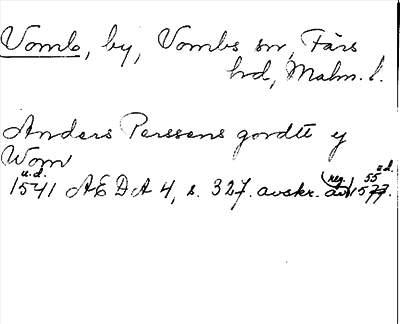 Vomb, by, Vombs sn, Färs
hrd, Malm. l.
Anders Perssens gordtt y
Wom
u.d.
1541 AEDA 4, s. 327. avskr.